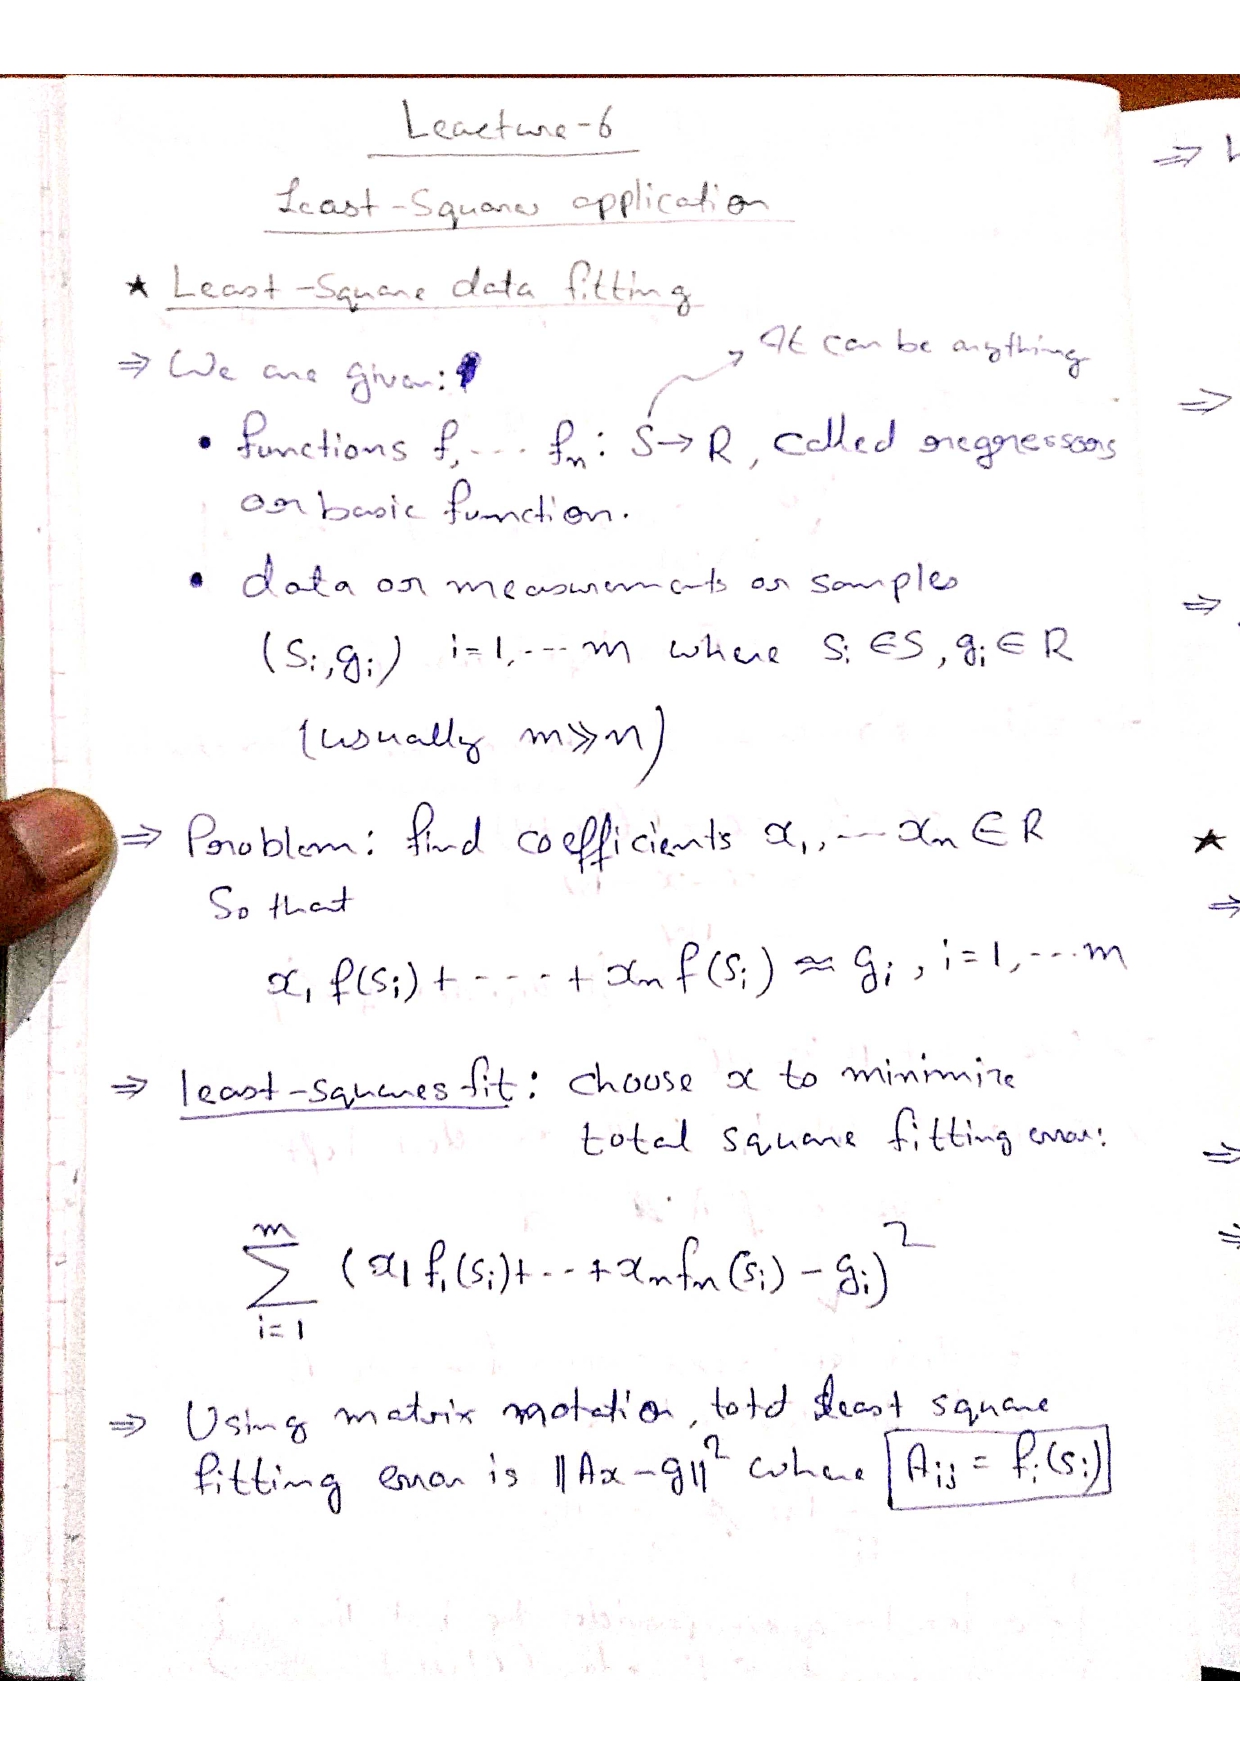 Leacture-6
Least-Squares application
★ Least-Square data fitting
⇒ We are given:
It can be anything
• functions f₁, ... fₙ: S→R, called regressors
or basic function.
• data or measurements or samples
(Sᵢ,gᵢ) i=1,... m where Sᵢ ∈S, gᵢ∈ R
(usually m≫n)
⇒ Problem: find coefficients x₁, ... xₙ ∈ R
So that
x₁ f(sᵢ)+ ---- + xₙ f(sᵢ) ≈ gᵢ, i=1,...m
⇒ least-squares fit: choose x to minimize
total square fitting error:
m
∑ (x₁ f₁(sᵢ)+--+xₙfₙ(sᵢ) - gᵢ)²
i=1
⇒ Using matrix notation, total least square
fitting error is ||Ax-g||² where Aᵢⱼ = fⱼ(sᵢ)